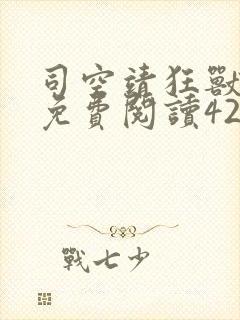 司空請狂獸
免費閱讀42
戰七少